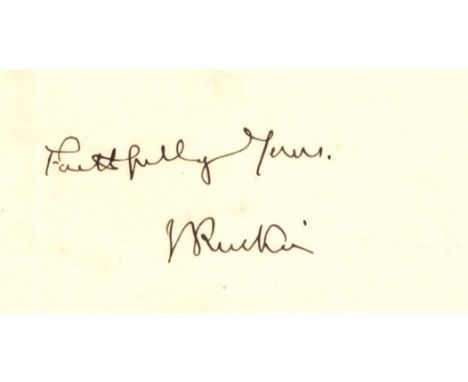 Faithfully Yours.
J Ruskin